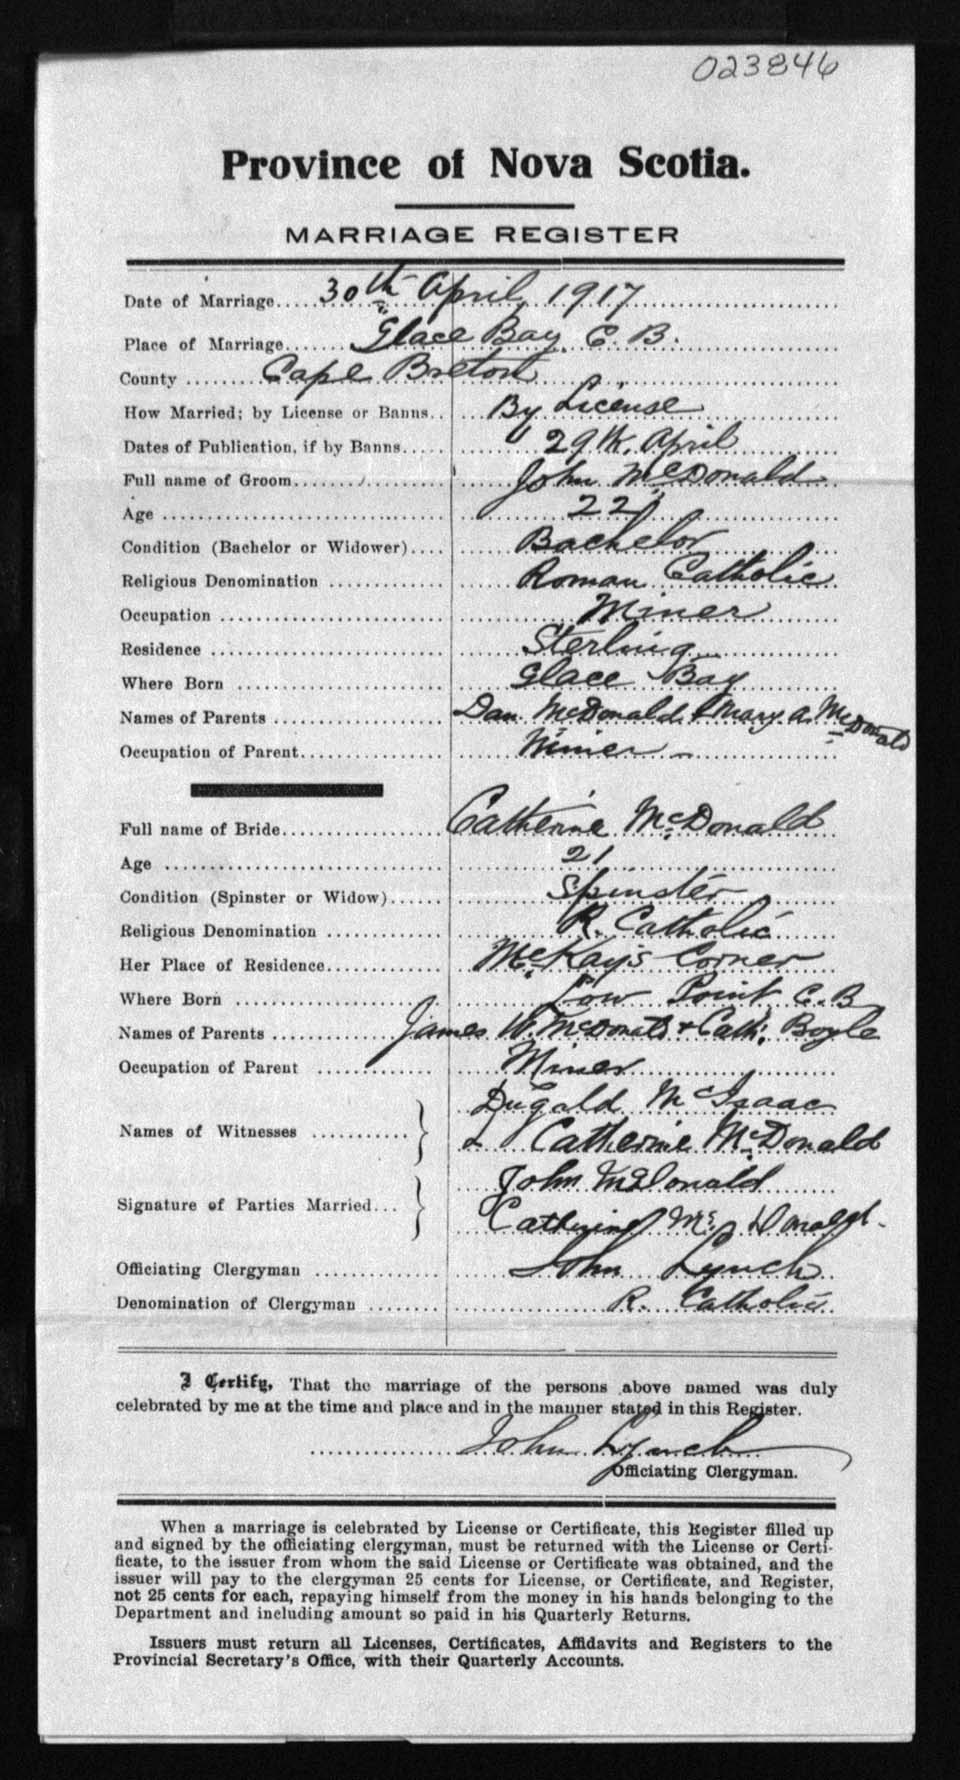 023846
Province of Nova Scotia.
MARRIAGE REGISTER
Date of Marriage.... 30th April, 1917
Place of Marriage....... Glace Bay C. B.
County ........ Cape Breton
How Married; by License or Banns.. By License
Dates of Publication, if by Banns..... 29th. April
Full name of Groom........ John McDonald
Age ........ 22
Condition (Bachelor or Widower).... Bachelor
Religious Denomination ............ Roman Catholic
Occupation ........ Miner
Residence ........ Sterling
Where Born ........ Glace Bay
Names of Parents ........ Dan McDonald & Mary A. McDonald
Occupation of Parent........ Miner
Full name of Bride........ Catherine McDonald
Age ........ 21
Condition (Spinster or Widow)...... Spinster
Religious Denomination ............ R. Catholic
Her Place of Residence............ McKay's Corner
Where Born ........ Low Point C.B
Names of Parents ........ James W. McDonald & Cath. Boyle
Occupation of Parent ............ Miner
Dugald McIsaac
Names of Witnesses ........... } & Catherine McDonald
John McDonald
Signature of Parties Married... } Catherine Mc Donald.
Officiating Clergyman ........ John Lynch
Denomination of Clergyman ........ R. Catholic
I Certify, That the marriage of the persons above named was duly
celebrated by me at the time and place and in the manner stated in this Register.
John Lynch
Officiating Clergyman.
When a marriage is celebrated by License or Certificate, this Register filled up
and signed by the officiating clergyman, must be returned with the License or Certi-
ficate, to the issuer from whom the said License or Certificate was obtained, and the
issuer will pay to the clergyman 25 cents for License, or Certificate, and Register,
not 25 cents for each, repaying himself from the money in his hands belonging to the
Department and including amount so paid in his Quarterly Returns.
Issuers must return all Licenses, Certificates, Affidavits and Registers to the
Provincial Secretary's Office, with their Quarterly Accounts.